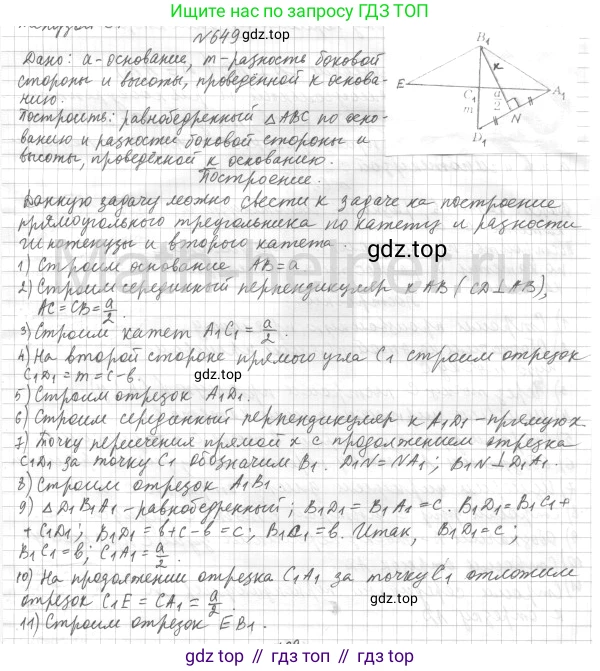 Ищите нас по запросу ГДЗ.ТОП
N649
Дано: а-основание, m-разность боковой
стороны и высоты, проведённой к основа-
нию.
Построить: равнобедренный △ABC по осно-
ванию и разности боковой стороны и
высоты, проведённой к основанию.
B₁
x
E
C₁
a/2
A₁
m
N
D₁
Построение.
Данную задачу можно свести к задаче на построение
прямоугольного треугольника по катету и разности
гипотенузы и второго катета.
gdz.top
1) Строим основание AB=a
2) Строим серединный перпендикуляр к AB (CD⊥AB),
AC=CB=a/2.
3) Строим катет A₁C₁=a/2.
4) На второй стороне прямого угла C₁ строим отрезок
C₁D₁=m=c-b.
5) Строим отрезок A₁D₁.
gdz.top
6) Строим серединный перпендикуляр к A₁D₁-прямую x
7) Точку пересечения прямой x с продолжением отрезка
C₁D₁ за точку C₁ обозначим B₁. D₁N=NA₁; B₁N⊥D₁A₁.
8) Строим отрезок A₁B₁.
9) △D₁B₁A₁-равнобедренный; B₁D₁=B₁A₁=c. B₁D₁=B₁C₁+
+C₁D₁; B₁D₁=b+c-b=c; B₁C₁=b. Итак, B₁D₁=c;
B₁C₁=b; C₁A₁=a/2.
10) На продолжении отрезка C₁A₁ за точку C₁ отложим
отрезок C₁E=CA₁=a/2.
gdz.top
11) Строим отрезок EB₁.
гдз.топ // gdz.top // гдз.топ // gdz.top